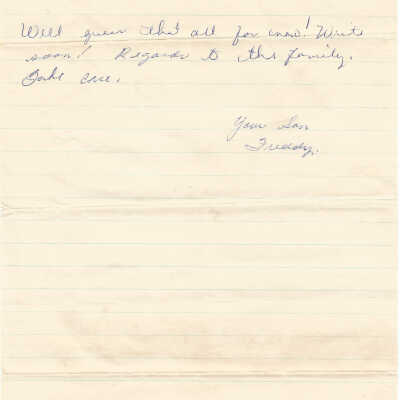 Well guess that all for now! Write
soon! Regards to the family.
Take care.
Your Son
Freddy.